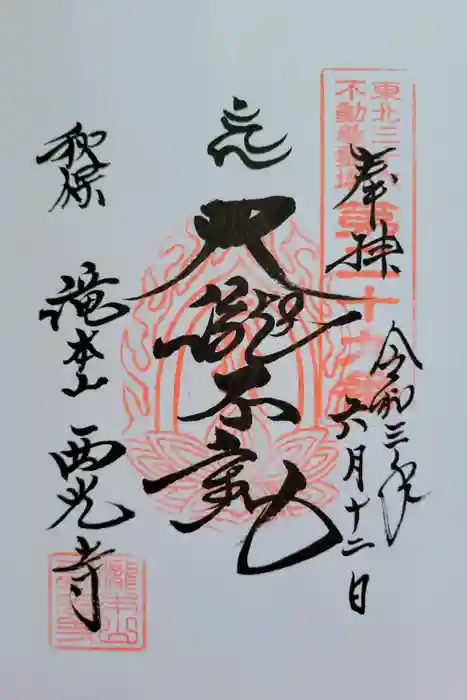 東北三十六
不動尊霊場
第二十六番
奉拝
令和三年
六月十二日
大瀧不動
秋保
滝本山 西光寺